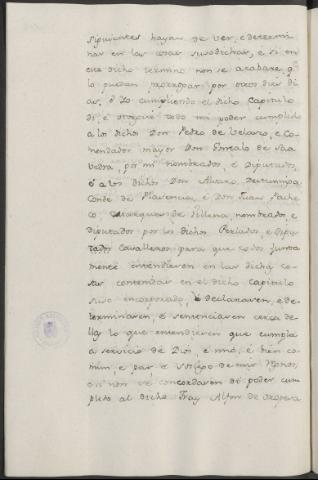 siguientes hayan de ver, e determi
nar en las cosas susodichas, e si en
este dicho termino non se acabare, q.e
lo puedan prorrogar por otros diez di
as, e Yo cumpliendo el dicho Capitulo
di, e otorgué todo mi poder cumplido
a los dichos Don Pedro de Velasco, e Co-
mendador mayor Don Gonzalo de Saa
vedra, por mi nombrados, e Diputados,
e a los dichos Don Alvaro Destuniga
Conde de Plasencia, e Don Juan Pache
co, Marques de Villena, nombrados, e
Diputados por los dichos Perlados, e Dipu-
tados Cavalleros para que todos junta
mente entendiesen en las dichas co-
sas contenidas en el dicho Capitulo
suso encorporado, e declarasen, e de-
terminasen, e sentenciasen cerca de
llas lo que entendiesen que cumplia
a servicio de Dios, e mio, e bien co-
mun, e paz, e sosiego de mis Regnos,
e si non se concordasen dé poder cum
plido al dicho Fray Alfon de Oropesa